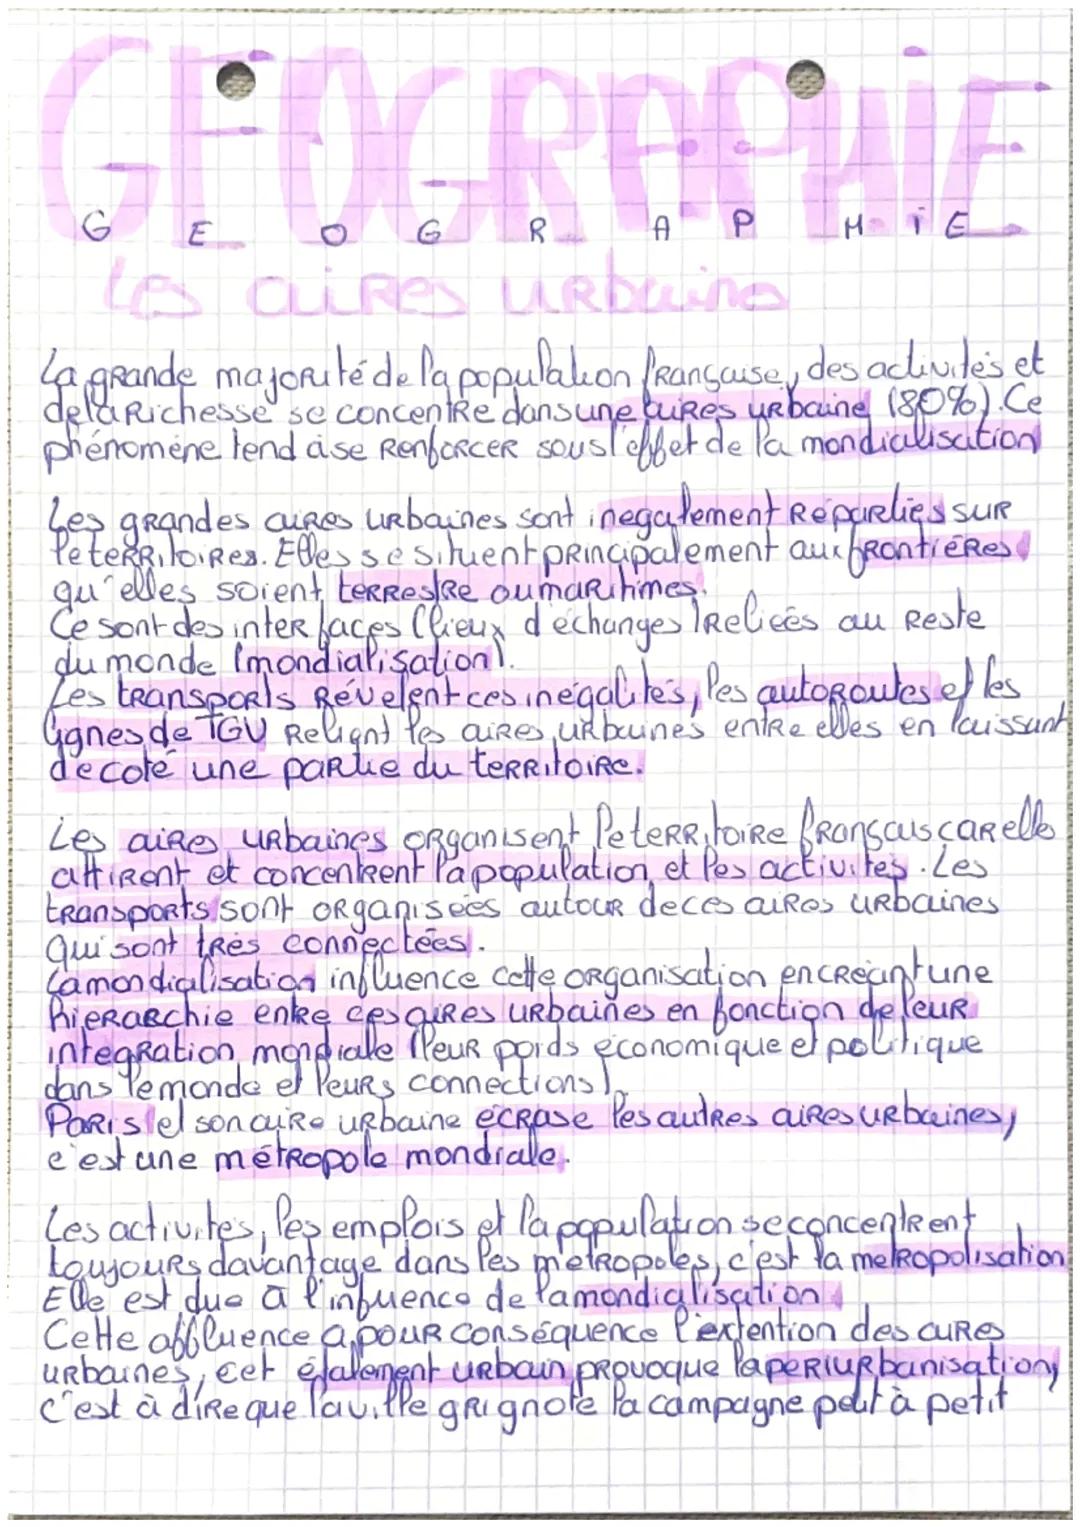 GEOGRAPHIE
G E O G R A P H i E
Les aires urbaines
La grande majorité de la population française, des activités et
de la Richesse se concentre dans une aires urbaine (80%). Ce
phénomène tend à se Renforcer sous l'effet de la mondialisation
Les grandes aires urbaines sont inegalement Réparties sur
le territoires. Elles se situent principalement aux frontières
qu'elles soient terrestre ou maritimes.
Ce sont des interfaces (lieux d'échanges) Reliées au Reste
du monde (mondialisation).
Les transports Révèlent ces inégalités, les autoroutes et les
lignes de TGV Relient les aires urbaines entre elles en laissant
de coté une partie du territoire.
Les aires urbaines organisent le territoire français car elle
attirent et concentrent la population et les activités. Les
transports sont organisées autour de ces aires urbaines
qui sont très connectées.
La mondialisation influence cette organisation en créant une
hierarchie entre ces aires urbaines en fonction de leur
integration mondiale (leur poids économique et politique
dans le monde et leurs connections).
Paris et son aire urbaine écrase les autres aires urbaines,
c'est une métropole mondiale.
Les activités, les emplois et la population se concentrent
toujours davantage dans les métropoles, c'est la metropolisation
Elle est due à l'influence de la mondialisation
Cette affluence a pour conséquence l'extention des aires
urbaines, cet étalement urbain provoque la periurbanisation,
c'est à dire que la ville grignote la campagne petit à petit